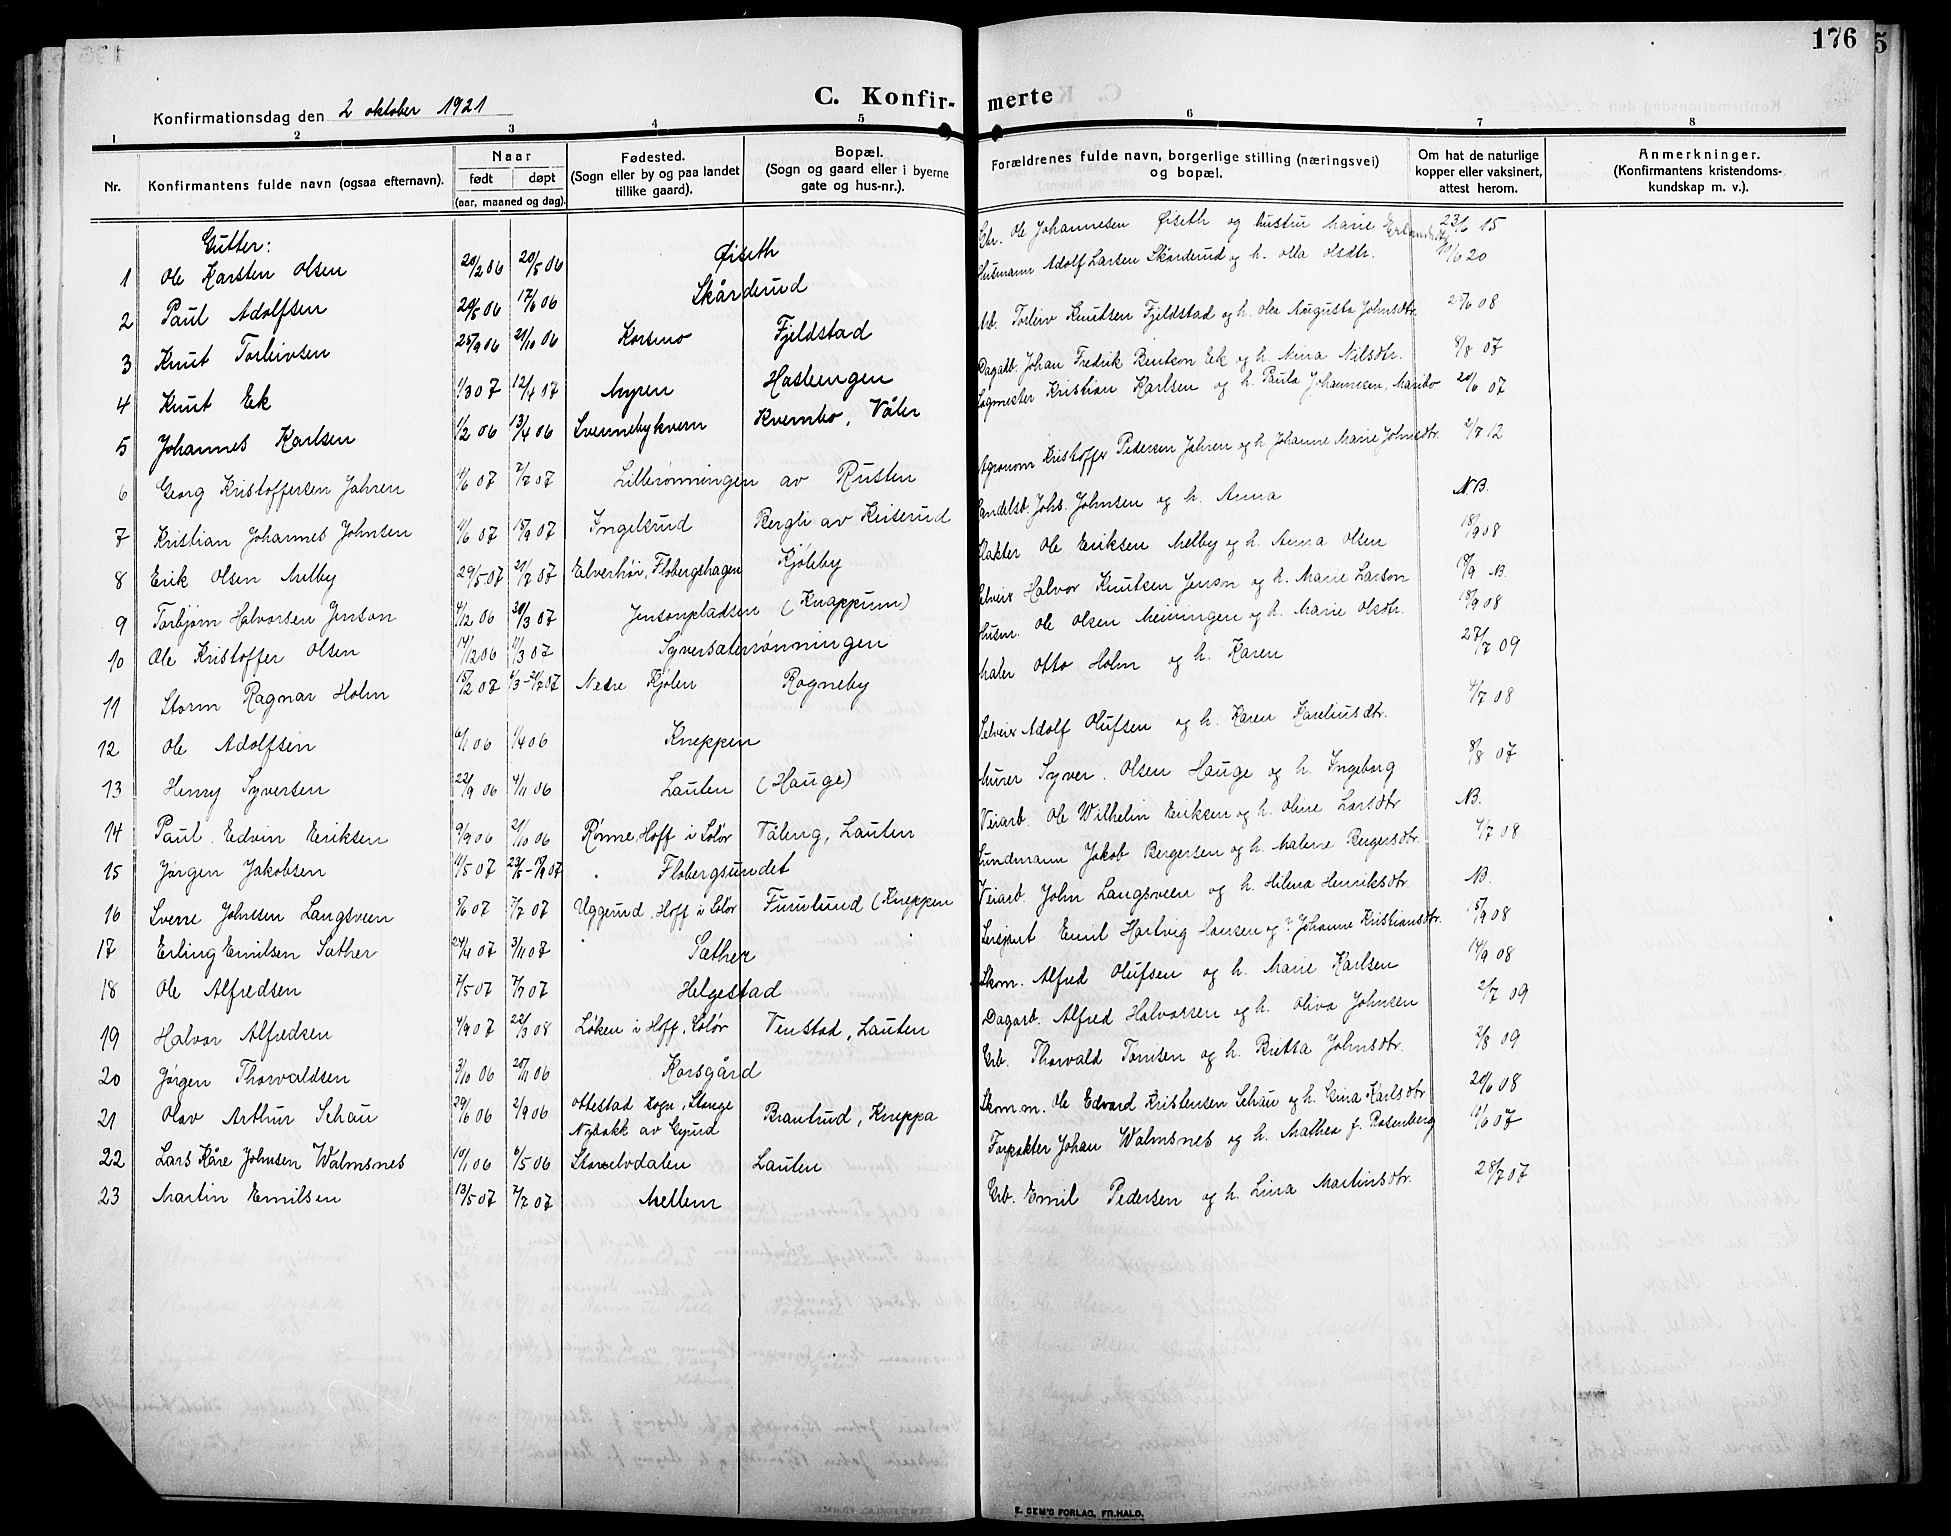 176
5
C. Konfir-merte
Konfirmationsdag den 2 oktober 1921
1 2 3 4 5 6 7 8
Nr.
Konfirmantens fulde navn (ogsaa efternavn).
Naar
født døpt
(aar, maaned og dag).
Fødested.
(Sogn eller by og paa landet
tillike gaard).
Bopæl.
(Sogn og gaard eller i byerne
gate og hus-nr.).
Forældrenes fulde navn, borgerlige stilling (næringsvei)
og bopæl.
Om hat de naturlige
kopper eller vaksinert,
attest herom.
Anmerkninger.
(Konfirmantens kristendoms-
kundskap m. v.).
Gutter:
1 Ole Karsten Olsen 20/2 06 20/5 06 Øiseth Ole Johannesen Øiseth og hustru Marie 23/6 15
2 Paul Adolfsen 17/6 06 Skårderud Husmann Adolf Larsen Skårderud og h. Olla Olsdtr. 20
3 Knut Torleivsen 25/9 06 21/10 06 Korsmo Fjeldstad Arb. Torleiv Knutsen Fjeldstad og h. Olea Augusta Johnsdtr. 08
4 Knut Ek 1/3 07 12/4 07 Myren Haslengen Dagarb. Johan Fredrik Bentson Ek og h. Mina Nilsdtr. 8/8 07
5 Johannes Karlsen 1/2 06 13/4 06 Svennebykvern Kvernbo, Våler Sagmester Kristian Karlsen og h. Paula Johannesen, Maribo 20/6 07
6 Georg Kristoffersen Jahren 07 7/7 07 Lillerønningen av Rusten Agronom Kristoffer Pedersen Jahren og h. Johanne Marie Johnsdtr. 12
7 Kristian Johannes Johnsen 1/6 07 15/9 07 Ingelsrud Bergli av Keiserud Johs. Johnsen og h. Anna N.B.
8 Erik Olsen Melby 29/5 07 21/7 07 Elverhøi, Flobergshagen Kjøleby Slakter Ole Eriksen Melby og h. Anna Olsen 18/9 08
9 Torbjørn Halvorsen Jenson 4/12 06 30/3 07 Jensonpladsen (Knappum) Selveier Halvor Knutsen Jenson og h. Marie Larson 18/9 N.
10 Ole Kristoffer Olsen 14/12 06 1/3 07 Syversæterrønningen Husm. Ole Olsen Meiningen og h. Marie Olsdtr. 18/9 08
11 Storm Ragnar Holm 15/2 07 Nedre Kjølen Rogneby Maler Otto Holm og h. Karen 27/7 09
12 Ole Adolfsen 6/1 06 1/4 06 Kneppen Selveier Adolf Olufsen og h. Karen Kareliusdtr. 4/7 08
13 Henry Syversen 22/9 06 4/11 06 Lauten (Hauge) Murer Syver Olsen Hauge og h. Ingeborg 8/8 07
14 Paul Edvin Eriksen 9/9 06 21/10 06 Rønne, Hoff i Solør Våleng, Lauten Veiarb. Ole Wilhelm Eriksen og h. Oline Larsdtr. N.
15 Jørgen Jakobsen 11/5 07 Flobergsundet Sundmann Jakob Bergersen og h. Malene Bergersdtr. 4/7 08
16 Sverre Johnsen Langsveen 07 7/7 07 Uggerud, Hoff i Solør Furulund (Kneppen Veiarb. John Langsveen og h. Helma Henriksdtr. N.
17 Erling Emilsen Sæther 24/4 07 3/11 07 Sæther Sersjant Emil Hartvig Hansen og h. Johanne Kristiansdtr. 15/9 08
18 Ole Alfredsen 7/5 07 7/7 07 Helgestad Skom. Alfred Olufsen og h. Marie Karlsen 14/9 08
19 Halvor Alfredsen 4/9 07 22/3 08 Løken i Hoff, Solør Venstad, Lauten Dagarb. Alfred Halvorsen og h. Oliva Johnsen 2/7 09
20 Jørgen Thorvaldsen 3/10 06 06 Korsgård Thorvald Tomsen og h. Bretta Johnsdtr. 2/8 09
21 Olav Arthur Schau 29/6 06 2/9 06 Ottestad sogn, Stange Brantrud, Kneppa Skom.m. Ole Edvard Kristensen Schau og h. Gina Karlsdtr. 20/6 08
av Gjurd
22 Lars Kåre Johnsen Walmsnes 10/1 06 6/5 06 Storelvdalen Lauten Forpakter Johan Walmsnes og h. Mathea f. Rosenberg 07
23 Martin Emilsen 13/5 07 7/7 07 Mellem Emil Pedersen og h. Lina Martinsdtr. 28/7 07
E. SEM'S FORLAG, FR.HALD.